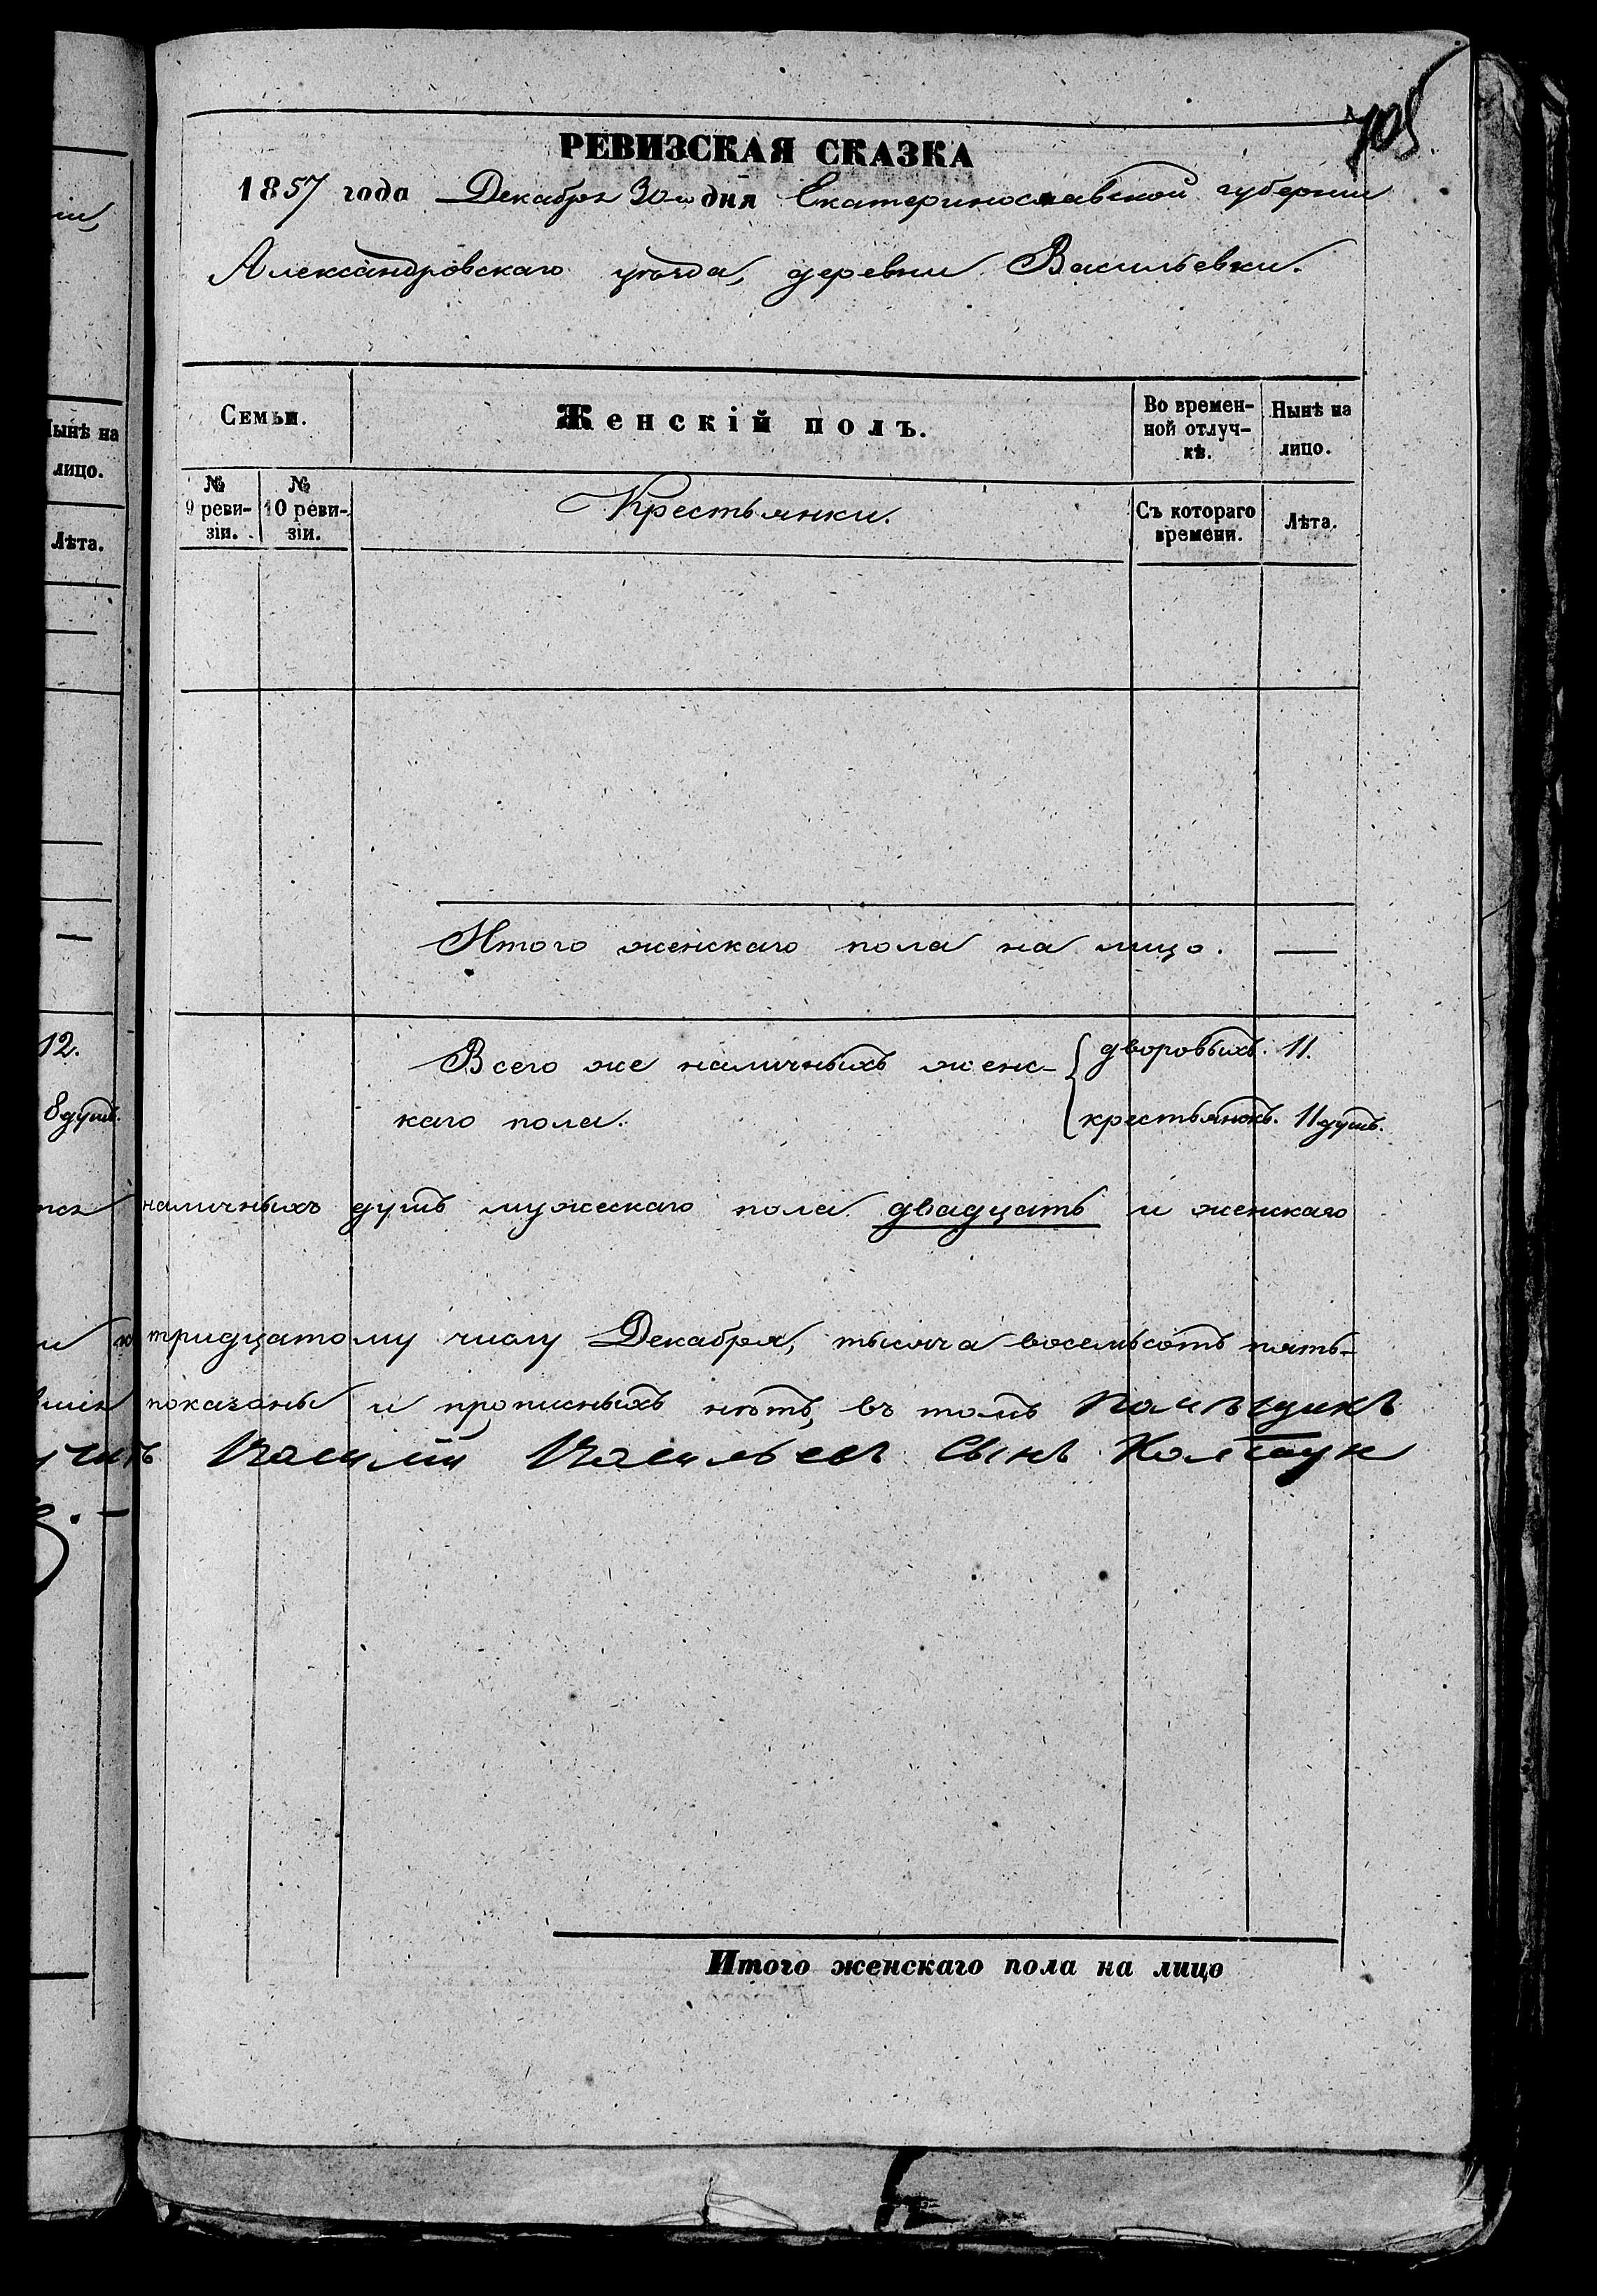 705
РЕВИЗСКАЯ СКАЗКА
1857 года Декабря 30го дня Екатеринославской губернии
Александровскаго уѣзда, деревни Васильевки.
Семьи.
Женскій полъ.
Во времен-
ной отлуч-
кѣ.
Нынѣ на
лицо.
№
9 реви-
зіи.
№
10 реви-
зіи.
Крестьянки.
Съ котораго
времени.
Лѣта.
Нынѣ на
лицо.
Лѣта.
Итого женскаго пола на лицо. —
12.
Всего же наличныхъ женс-
дворовыхъ. 11.
8 душъ.
каго пола.
крестьянокъ. 11 душъ.
наличныхъ душъ мужескаго пола двадцать и женскаго
и к тридцатому числу Декабря, тысяча восемьсотъ пять-
показаны и прописныхъ нѣтъ, въ томъ Помѣщикъ
Василій Васильевъ Сынъ
Итого женскаго пола на лицо